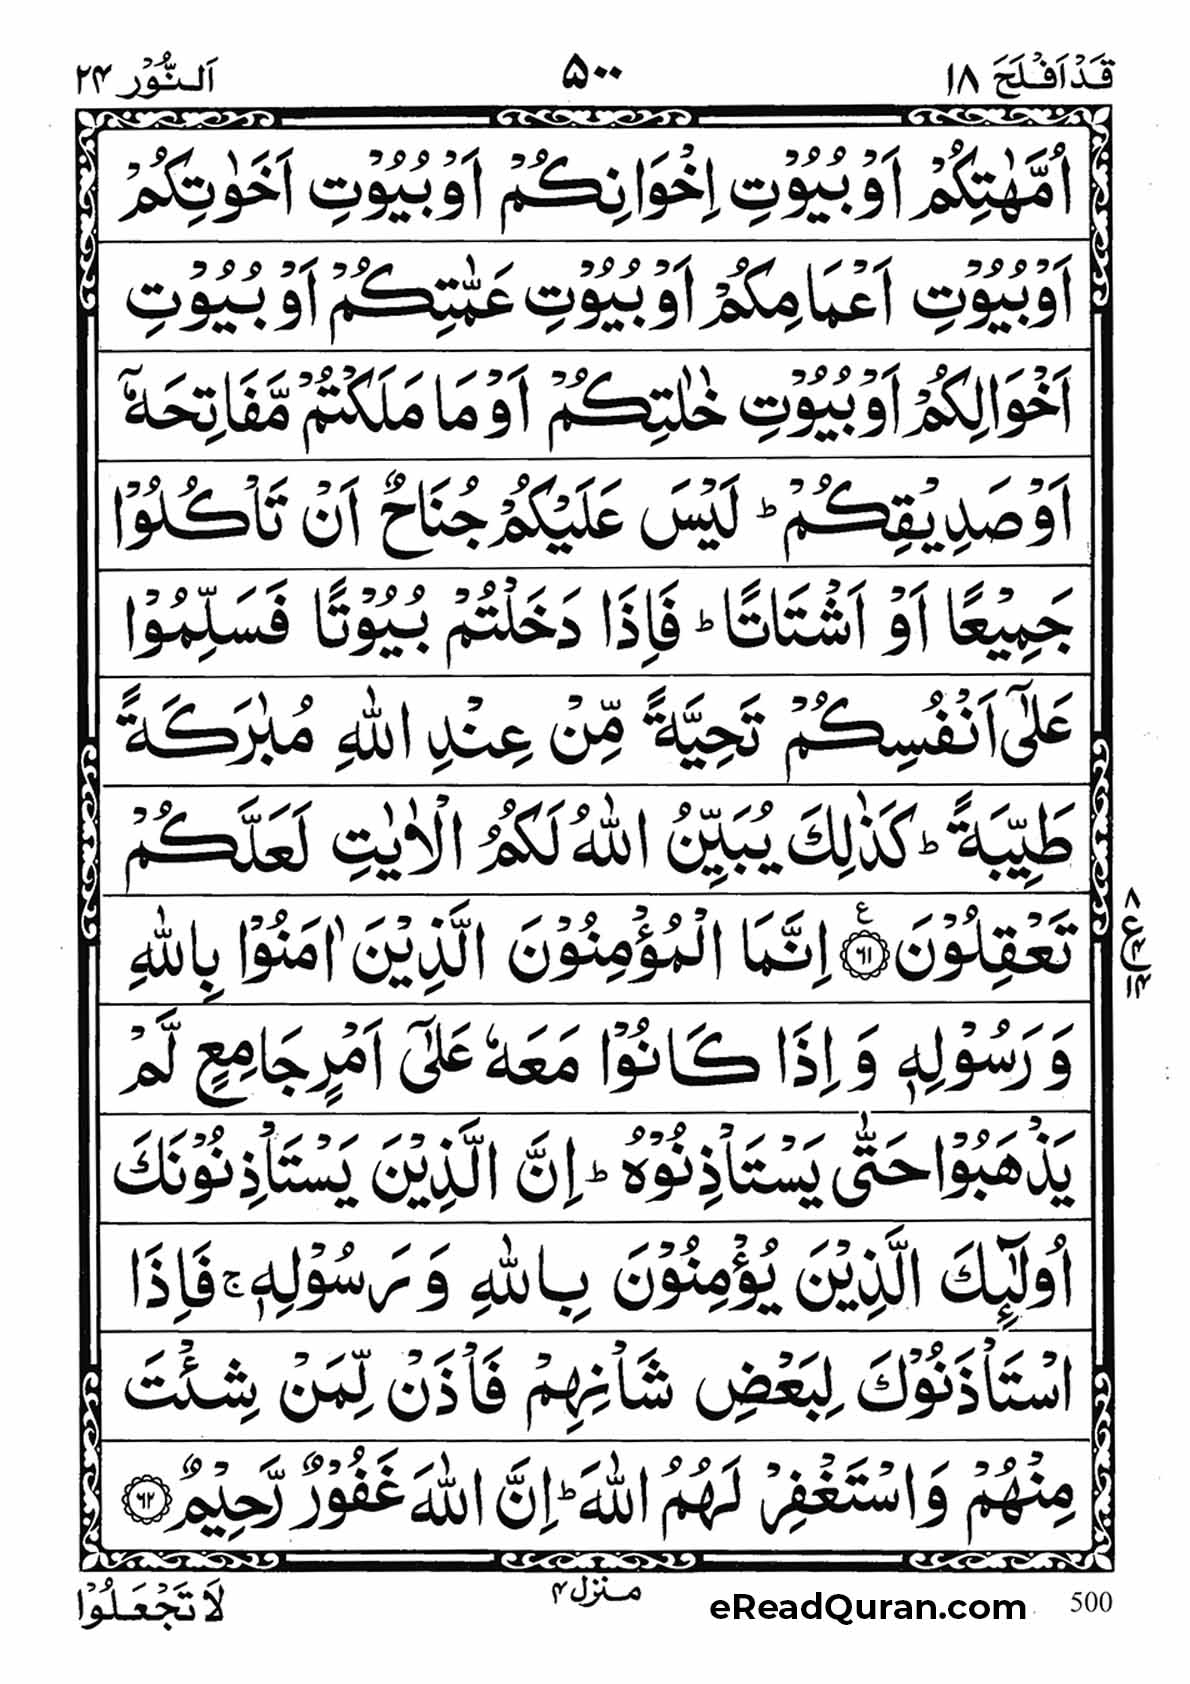 قَدْ اَفْلَحَ ١٨ ۵۰۰ اَلنُّوْر ٢۴
اُمَّهٰتِكُمْ اَوْ بُيُوْتِ اِخْوَانِكُمْ اَوْ بُيُوْتِ اَخَوٰتِكُمْ
اَوْ بُيُوْتِ اَعْمَامِكُمْ اَوْ بُيُوْتِ عَمّٰتِكُمْ اَوْ بُيُوْتِ
اَخْوَالِكُمْ اَوْ بُيُوْتِ خٰلٰتِكُمْ اَوْ مَا مَلَكْتُمْ مَّفَاتِحَهٗۤ
اَوْ صَدِيْقِكُمْ ؕ لَيْسَ عَلَيْكُمْ جُنَاحٌ اَنْ تَاْكُلُوْا
جَمِيْعًا اَوْ اَشْتَاتًا ؕ فَاِذَا دَخَلْتُمْ بُيُوْتًا فَسَلِّمُوْا
عَلٰۤى اَنْفُسِكُمْ تَحِيَّةً مِّنْ عِنْدِ اللّٰهِ مُبٰرَكَةً
طَيِّبَةً ؕ كَذٰلِكَ يُبَيِّنُ اللّٰهُ لَكُمُ الْاٰيٰتِ لَعَلَّكُمْ
تَعْقِلُوْنَ ع ٦١ اِنَّمَا الْمُؤْمِنُوْنَ الَّذِيْنَ اٰمَنُوْا بِاللّٰهِ
وَ رَسُوْلِهٖ وَ اِذَا كَانُوْا مَعَهٗ عَلٰۤى اَمْرٍ جَامِعٍ لَّمْ
يَذْهَبُوْا حَتّٰى يَسْتَاْذِنُوْهُ ؕ اِنَّ الَّذِيْنَ يَسْتَاْذِنُوْنَكَ
اُولٰٓئِكَ الَّذِيْنَ يُؤْمِنُوْنَ بِاللّٰهِ وَ رَسُوْلِهٖ ۚ فَاِذَا
اسْتَاْذَنُوْكَ لِبَعْضِ شَاْنِهِمْ فَاْذَنْ لِّمَنْ شِئْتَ
مِنْهُمْ وَ اسْتَغْفِرْ لَهُمُ اللّٰهَ ؕ اِنَّ اللّٰهَ غَفُوْرٌ رَّحِيْمٌ ٦٢
لَا تَجْعَلُوْا
منزل ۴
eReadQuran.com
500